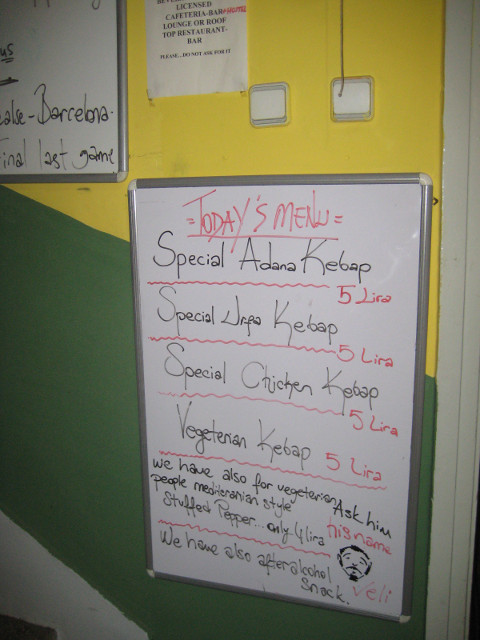 LICENSED
CAFETERIA-BAR
LOUNGE OR ROOF
TOP RESTAURANT-
BAR
PLEASE...DO NOT ASK FOR IT
us
-Barcelona-
Final last game
=TODAY'S MENU=
Special Adana Kebap
5 Lira
Special Urfa Kebap
5 Lira
Special Chicken Kebap
5 Lira
Vegeterian Kebap 5 Lira
we have also for vegeterian
people mediteranian style
Stuffed Pepper... only 4 lira
Ask him
his name
Veli
We have also after alcohol
Snack.